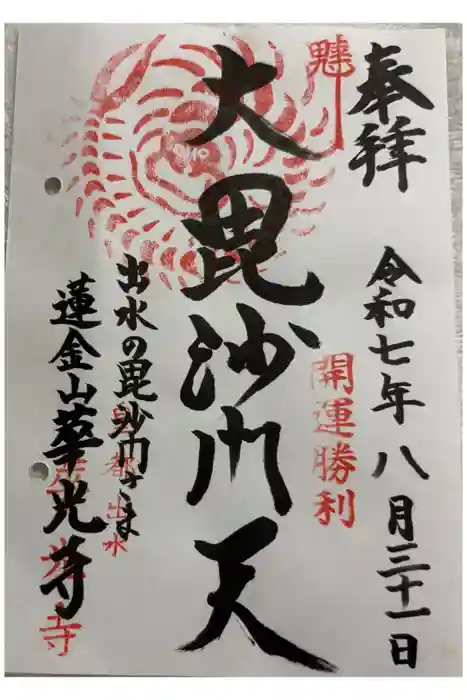 奉拝
令和七年八月三十一日
魅
開運勝利
大毘沙門天
出水の毘沙門さま
京都出水
蓮金山華光寺
華光寺